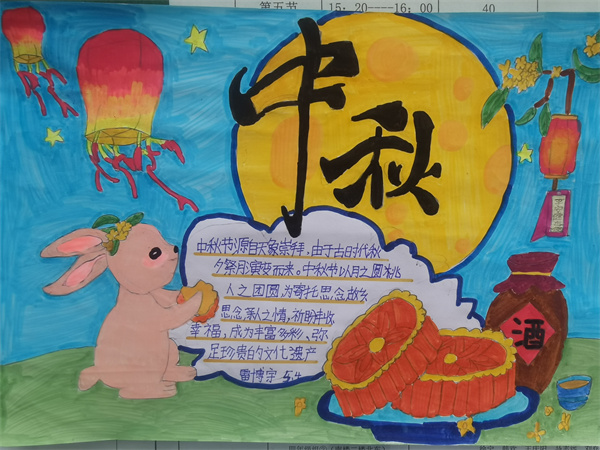 第五节 15:20----16:00 40
中秋
中秋节源自天象崇拜，由于古时代秋
夕祭月演变而来。中秋节以月之圆桃
人之团圆，为寄托思念故乡
思念亲人之情，祈盼丰收
幸福，成为丰富多彩、弥
足珍贵的文化遗产
雷博宇 5.4
酒